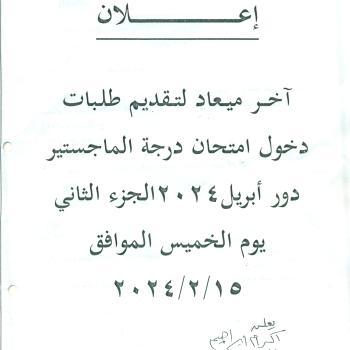 إعـــــــــلان
آخـر ميـعاد لتـقديم طلبـات
دخول امتحان درجة الماجستير
دور أبريل ٢٠٢٤ الجزء الثاني
يوم الخميس الموافق
٢٠٢٤/٢/١٥
يعلن